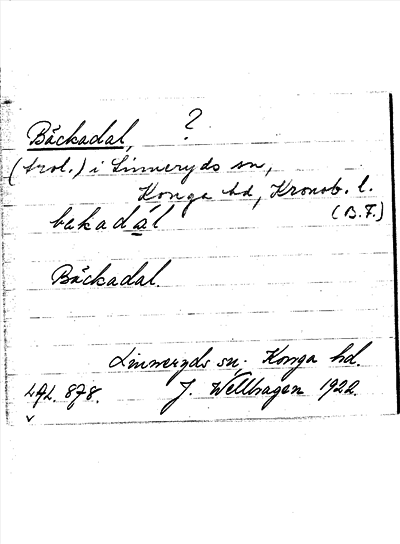 Bäckadal, ?
(trol.) i Linneryds sn,
Konga hd, Kronob. l.
(B.F.)
bakadál
Bäckadal.
Linneryds sn. Konga hd.
J. Wellhagen 1922.